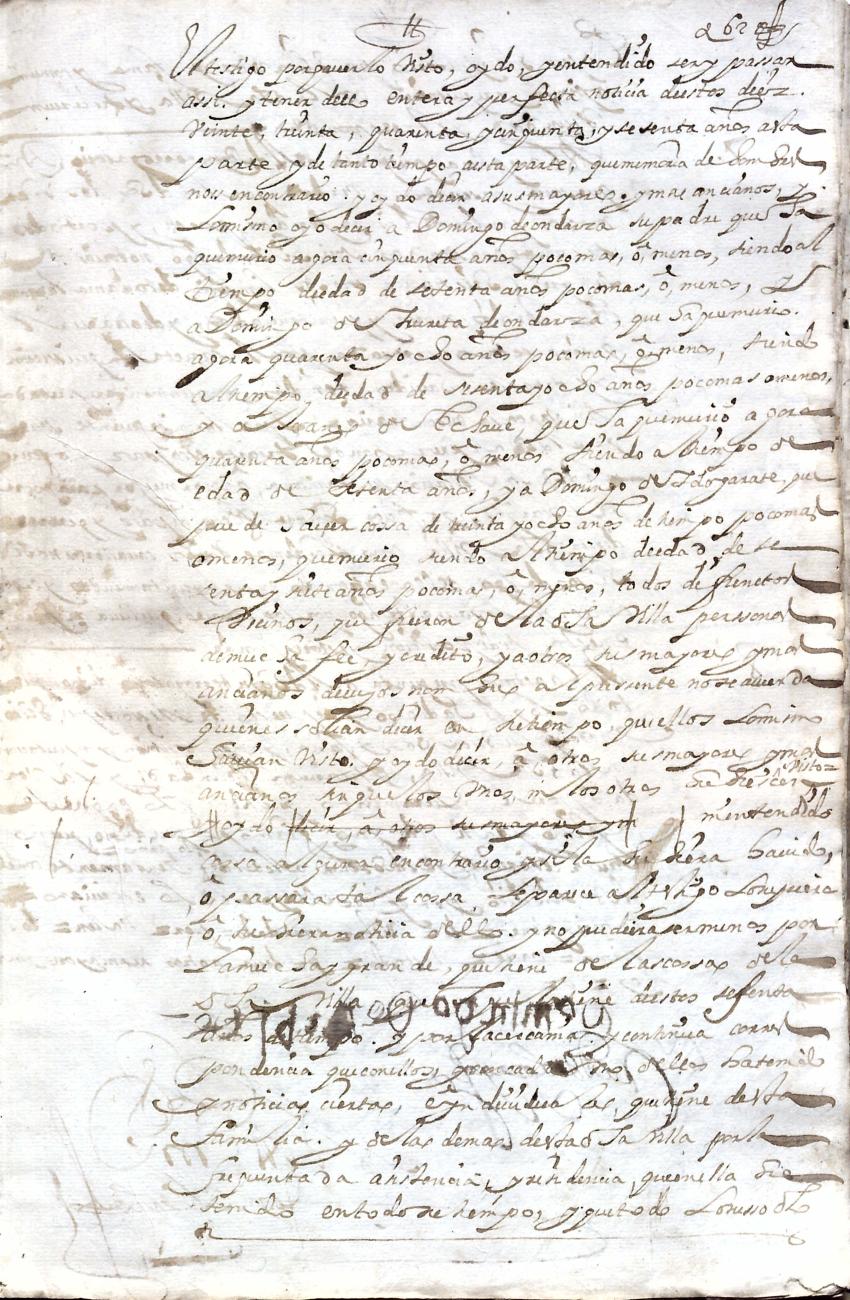 El testigo por haverlo visto, oydo, y entendido ser y passar
assi. y tener dello entera y perfecta noticia destos diez.
Veinte, treinta, quarenta, y cinquenta, y sesenta años a esta
parte y de tanto tiempo aesta parte, que memoria de hombres
no es en contrario. y oydo decir a sus mayores. y mas ancianos, y
Lo mismo oyo decir a Domingo de ondarza su padre que ha
que murio agora cinquenta años poco mas, ô, menos, siendo al
tiempo de edad de setenta años poco mas, ô, menos, y
a Domingo de Ytureta de ondarza, que ha que murio.
agora quarenta y ocho años poco mas, ô menos, siendo
al tiempo de edad de sesenta y ocho años poco mas o menos,
y a de Echave, que ha que murio agora
quarenta años poco mas, ô menos siendo al tiempo de
edad de setenta años, y a Domingo de que
pue de haver cossa de treinta y ocho años de tiempo poco mas
o menos, que murio siendo al tiempo de edad de se
senta y siete años poco mas, ô, menos, todos defunctos
Vecinos, que fueron de la dha Villa personas
de mucha fee, y credito, y a otros sus mayores y mas
ancianos de cuyos nombres al pressente no se acuerda
quienes solian decir en su tiempo, que ellos lo mismo
havian visto. y oydo decir, â, otros sus mayores y mas
ancianos sin que los unos, ni los otros Visto=
oydo decir, â otros sus mayores y m ni entendido
cosa alguna en contrario y si la hu biera havido,
ô passara tal cossa, le parece al testigo lo supiera
ô, tubiera noticia dello. y no pudiera ser menos por
la mucha y grande, que tiene de las cossas de la
dha Villa que tiene destos sesenta
años de tiempo. y por la cercania. y continua corres
pondencia que con ellos, y con cada uno dellos ha tenido
y noticias ciertas, e yn dividuales, que tiene desta
familia. y de las demas desta dha Villa por la
frequentada asistencia, y residencia, que en ella ha
tenido en todo su tiempo, y que todo lo susso dho